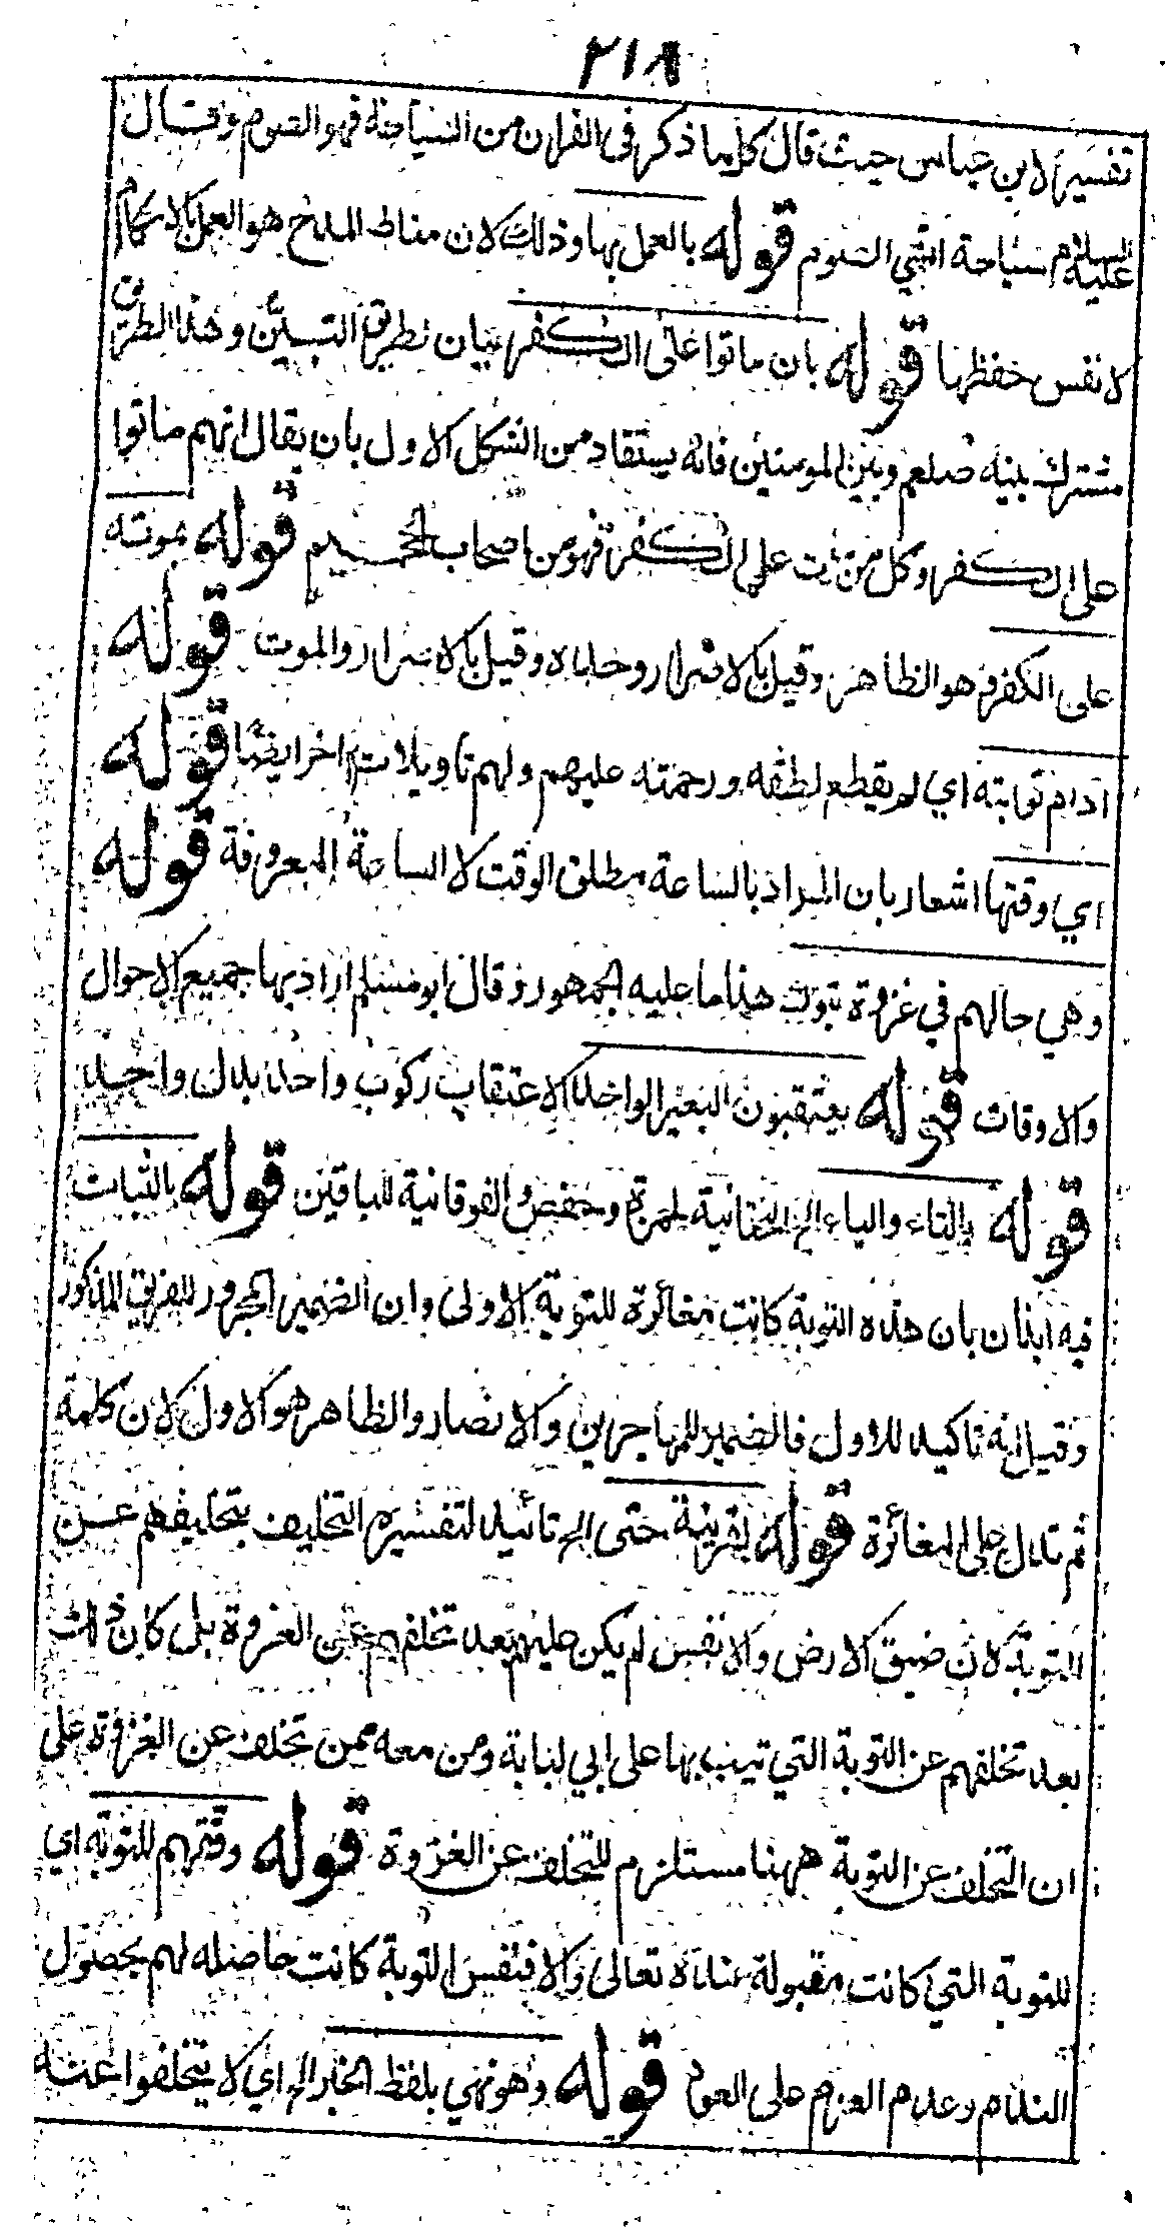 ٢١٨
تفسيره لابن عباس حيث قال كلما ذكر في القران من السياحة فهو الصوم وقال
عليه السلام سياحة امتي الصوم قوله بالعمل بها وذلك لان مناط المدح هو العمل بالاحكام
لا نفس حفظها قوله بان ماتوا على الكفر بيان لطريق التبين وهذا الطريق
مشترك بينه صلعم وبين المومنين فانه يستفاد من الشكل الاول بان يقال انهم ماتوا
على الكفر وكل من مات على الكفر فهو من اصحاب الجحيم قوله بموته
على الكفر هو الظاهر وقيل بالاقرار وحده وقيل بالاسرار والموت قوله
ادام توبته اي لم يقطع لطفه ورحمته عليهم ولهم تاويلات اخر ايضا قوله
اي وقتها اشعار بان المراد بالساعة مطلق الوقت لا الساعة المعروفة قوله
وهي حالهم في غزوة تبوك هذا ما عليه الجمهور وقال ابو مسلم اراد بها جميع الاحوال
والاوقات قوله يعتقبون البعير الواحد الاعتقاب ركوب واحد بدل واحد
قوله بالتاء والياء الخ التحتانية لحمزة وحفص والفوقانية للباقين قوله بالثبات
فيه ايذان بان هذه التوبة كانت مغائرة للتوبة الاولى وان الضمير المجرور للفريق المذكور
وقيل انه تاكيد للاول فالضمير للمهاجرين والانصار والظاهر هو الاول لان كلمة
ثم تدل على المغائرة قوله بقرينة حتى الخ تائيد لتفسيره التخليف بتخليفهم عن
التوبة لان ضيق الارض والانفس لم يكن عليهم بعد تخلفهم عن الغزوة بل كان ذلك
بعد تخلفهم عن التوبة التي تيب بها على ابي لبابة ومن معه ممن تخلف عن الغزوة على
ان التخلف عن التوبة ههنا مستلزم للتخلف عن الغزوة قوله وفقهم للتوبة اي
للتوبة التي كانت مقبولة عنده تعالى والا فنفس التوبة كانت حاصله لهم بحصول
الندم وعدم العزم على العود قوله وهو نهي بلفظ الخبر الخ اي لا يتخلفوا عنه